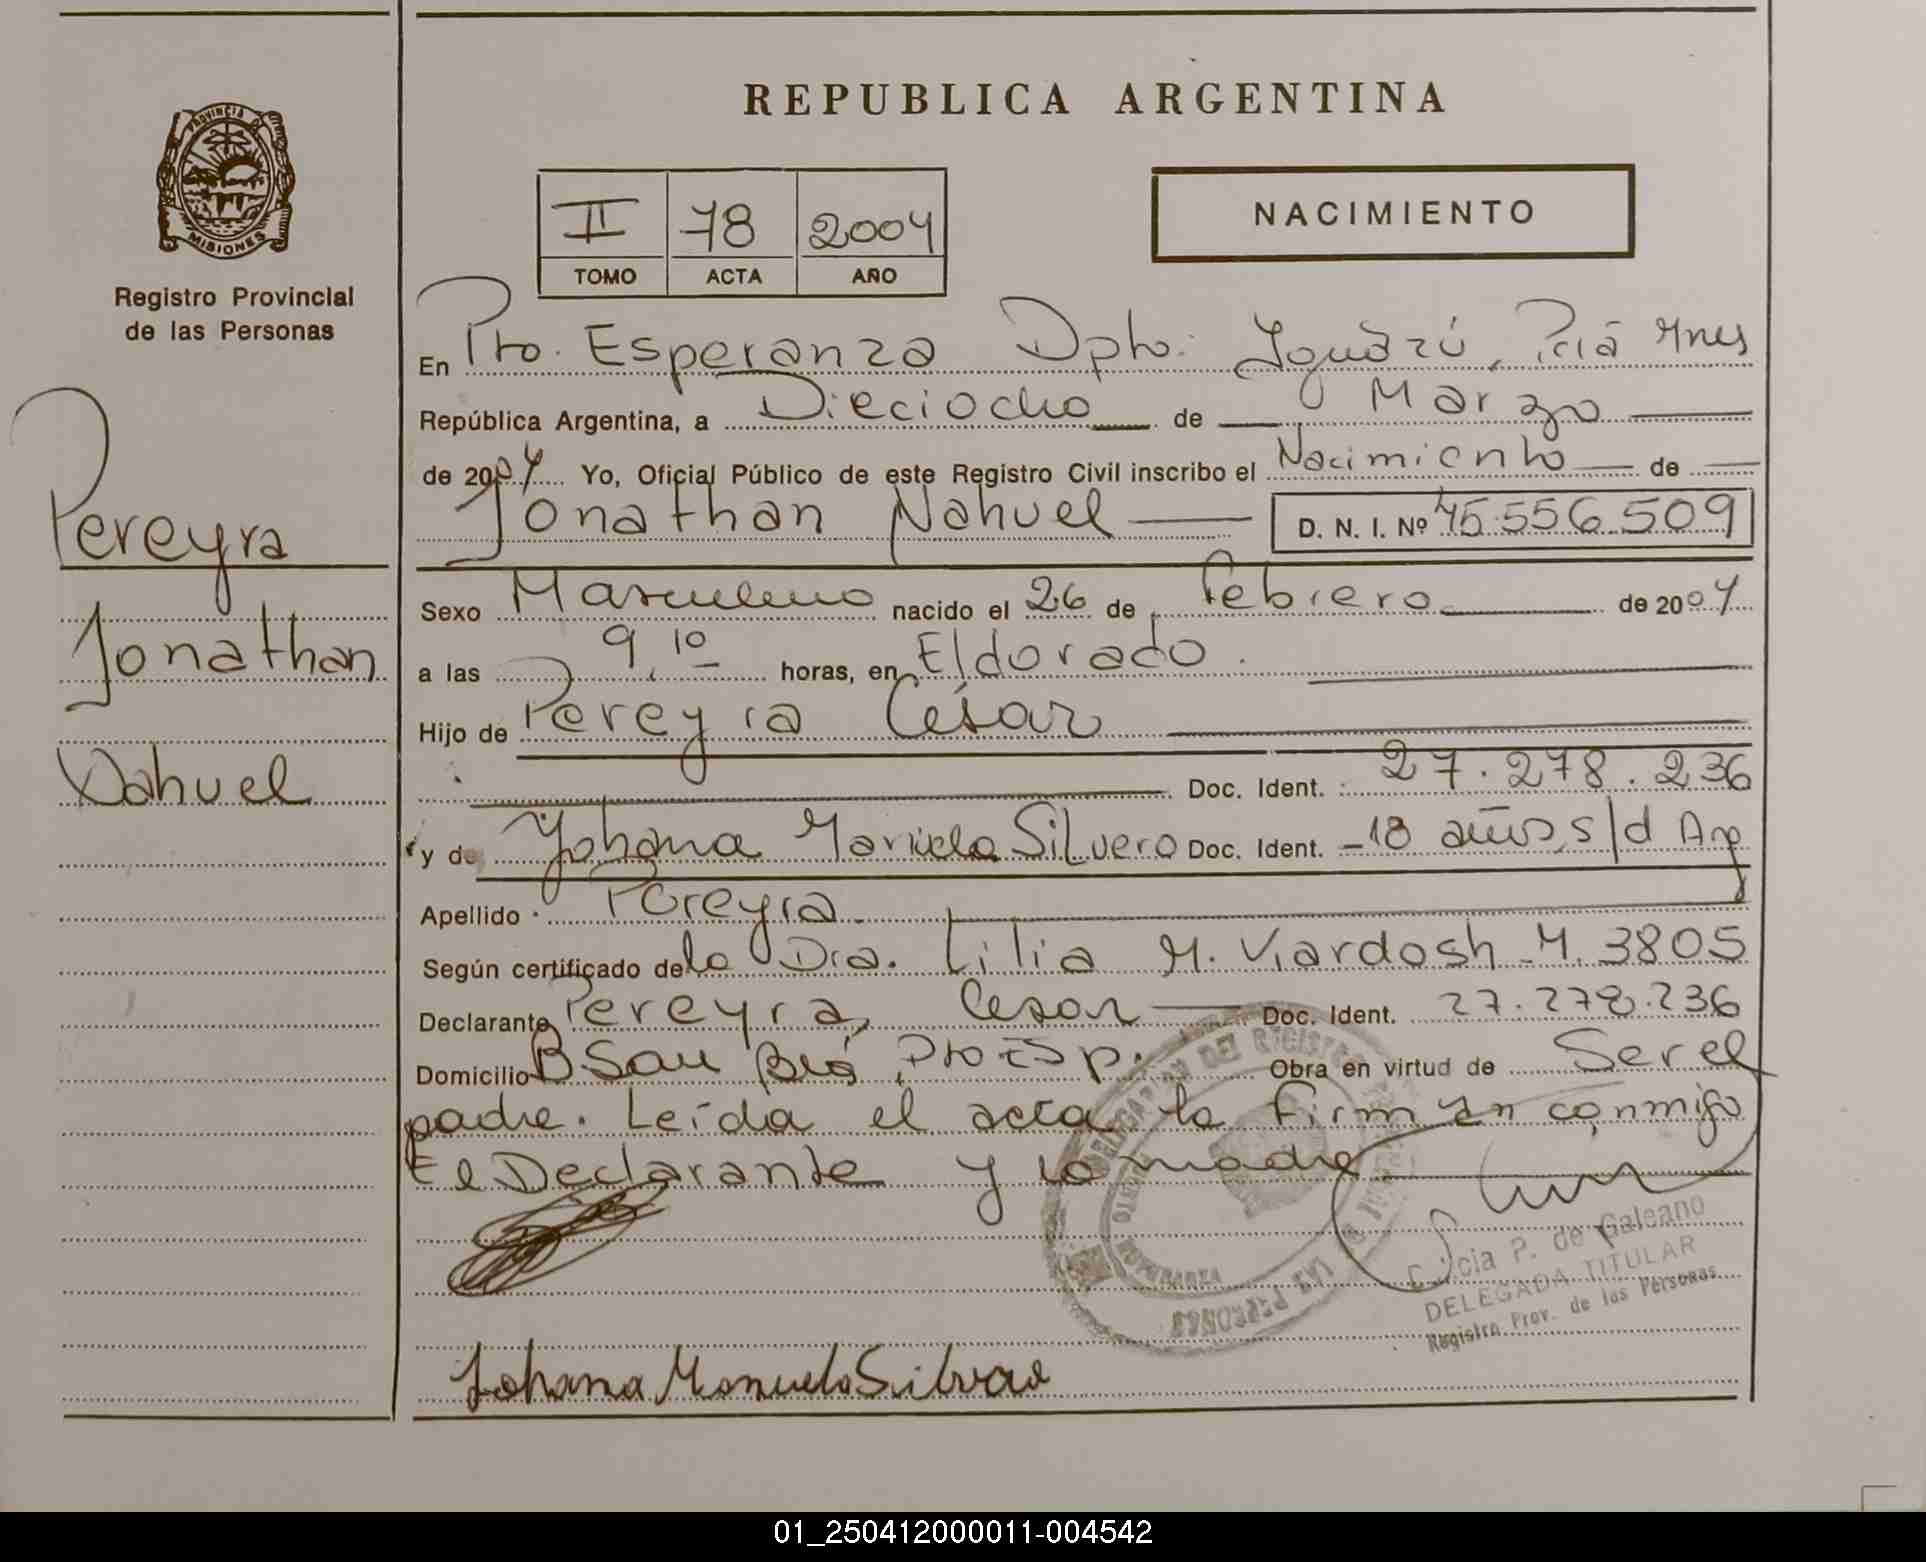 REPUBLICA ARGENTINA
PROVINCIA DE
MISIONES
Registro Provincial
de las Personas
Pereyra
Jonathan
Nahuel
II 78 2004
TOMO ACTA AÑO
NACIMIENTO
En Pto. Esperanza Dpto. Iguazú, Pciá Mnes
República Argentina, a Dieciocho de Marzo
de 2004 Yo, Oficial Público de este Registro Civil inscribo el Nacimiento de
Jonathan Nahuel D. N. I. Nº 45.556.509
Sexo Masculino nacido el 26 de Febrero de 2004
a las 9,10 horas, en Eldorado.
Hijo de Pereyra César
Doc. Ident. 27.278.236
y de Johana Mariela Silvero Doc. Ident. -18 años, s/d Arg
Apellido Pereyra
Según certificado de la Dra. Lilia M. Viardosh M. 3805
Declarante Pereyra, Cesar Doc. Ident. 27.278.236
Domicilio B San Pto Esp. Obra en virtud de Ser el
padre. Leída el acta la firman conmigo
El Declarante y la madre
DELEGACION DEL REGISTRO PROVINCIAL DE LAS PERSONAS
PUERTO ESPERANZA
P. de Galeano
DELEGADA TITULAR
Registro Prov. de las Personas
Johana Manuela Silvero
01_250412000011-004542